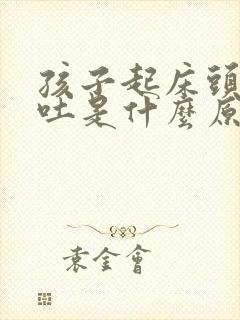 孩子起床頭
吐是什麼原
袁金會